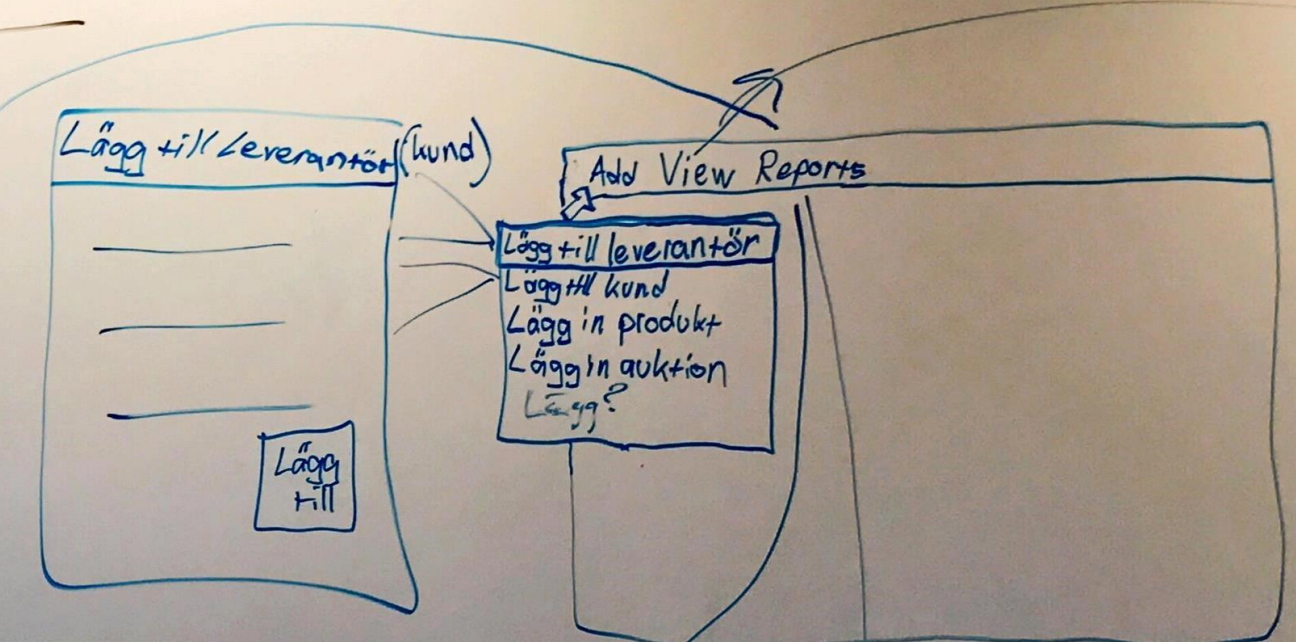 Lägg till Leverantör (kund)
Lägg
till
Add View Reports
Lägg till leverantör
Lägg till kund
Lägg in produkt
Lägg in auktion
Lägg?